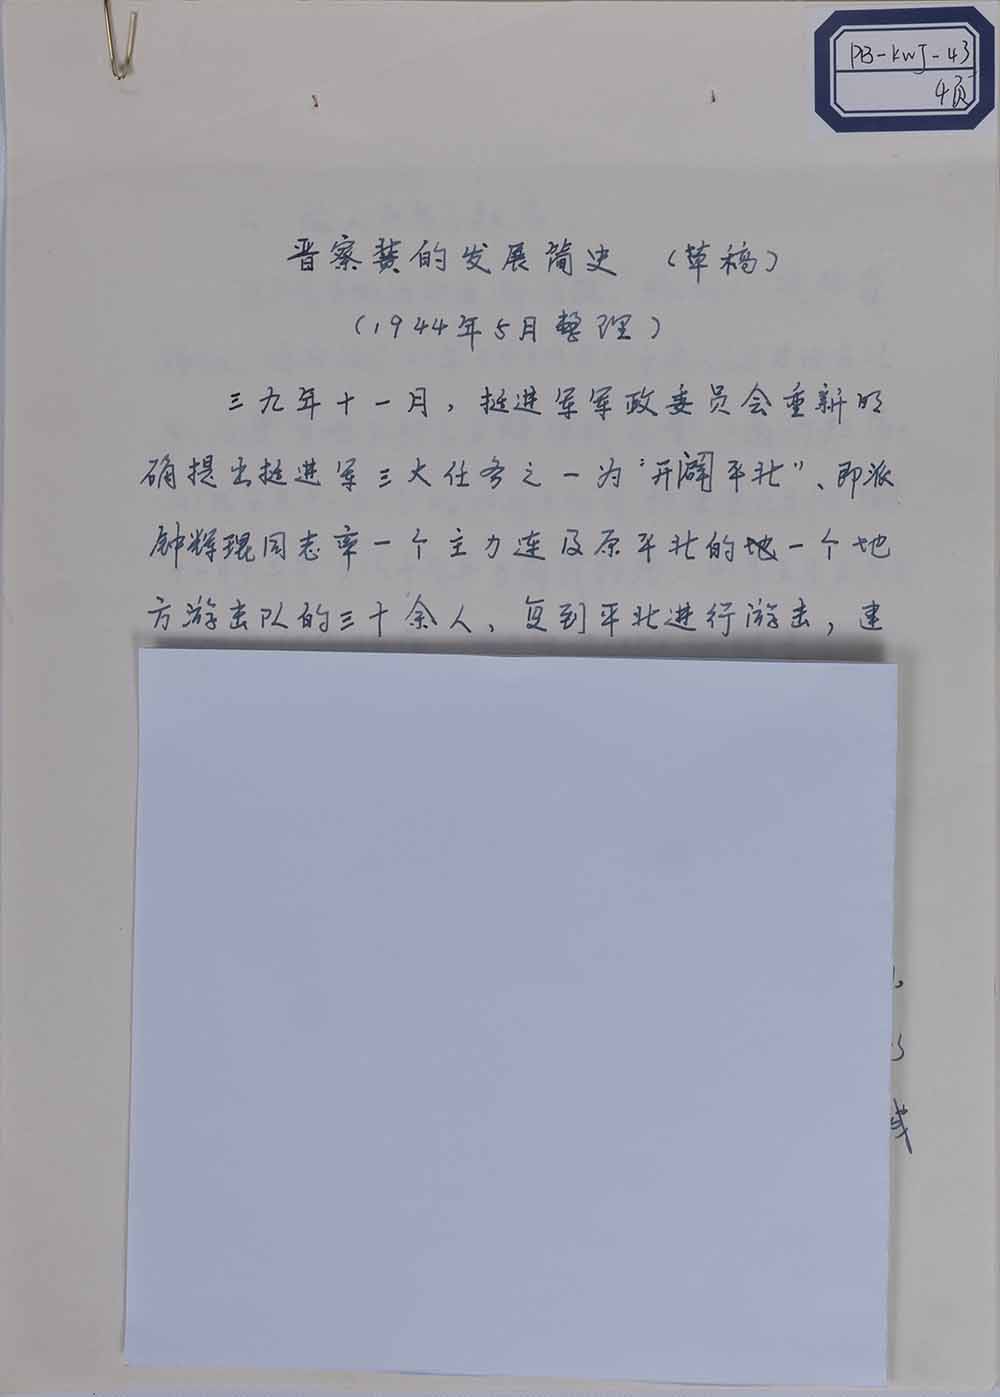 PB-KWJ-43
4页
晋察冀的发展简史 （草稿）
（1944年5月整理）
三九年十一月，挺进军军政委员会重新明
确提出挺进军三大任务之一为“开闢平北”、即派
钟辉琨同志率一个主力连及原平北的一个地
方游击队的三十余人，复到平北进行游击，建